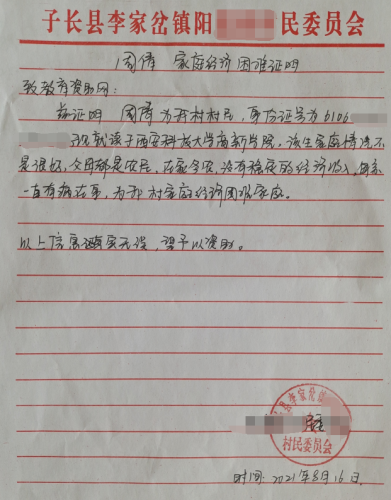 子长县李家岔镇阳 民委员会
周倩 家庭经济困难证明
致教育资助网：
兹证明 周倩 为我村村民，身份证号为6106
现就读于西安科技大学高新学院。该生家庭情况不
是很好，父母都是农民，在家务农，没有稳定的经济收入，母亲
一直有病在身，为我村家庭经济困难家庭。
以上信息确实无误，望予以资助。
子长县李家岔
村民委员会
时间：2021年8月16日